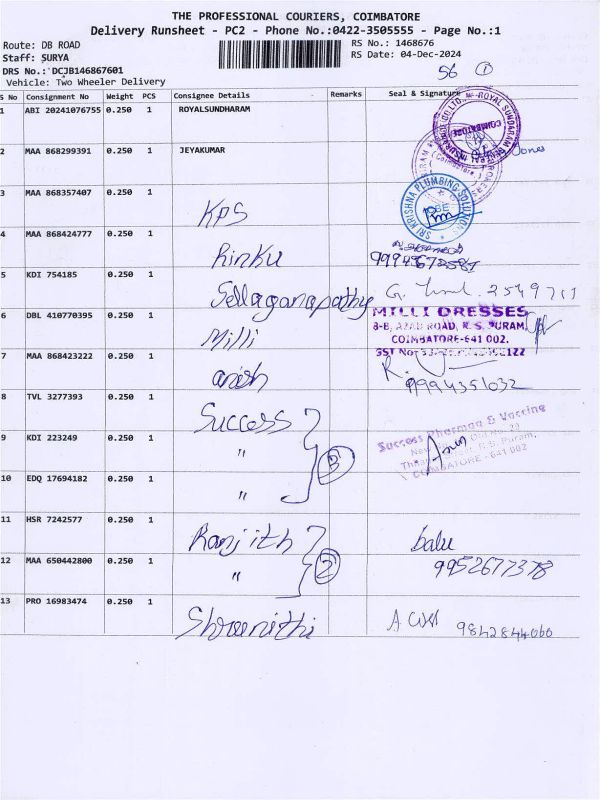 THE PROFESSIONAL COURIERS, COIMBATORE
Delivery Runsheet - PC2 - Phone No.:0422-3505555 - Page No.:1
Route: DB ROAD
RS No.: 1468676
Staff: SURYA
RS Date: 04-Dec-2024
DRS No.: DCJB146867601
Vehicle: Two Wheeler Delivery
56 1
S No Consignment No Weight PCS Consignee Details Remarks Seal & Signature
1 ABI 20241076755 0.250 1 ROYALSUNDHARAM
2 MAA 868299391 0.250 1 JEYAKUMAR
3 MAA 868357407 0.250 1 KPS SRI KRISHNA PLUMBING SOLUTIONS
4 MAA 868424777 0.250 1 Rinku
5 KDI 754185 0.250 1 Sellaganapathy G.
6 DBL 410770395 0.250 1 Milli MILLI DRESSES
8-B, AZAD ROAD, R. S. PURAM,
COIMBATORE-641 002.
GST No:
7 MAA 868423222 0.250 1 anish 9994351032
8 TVL 3277393 0.250 1 Success
9 KDI 223249 0.250 1 " 3 Success Pharmaa & Vaccine
R.S. Puram,
COIMBATORE - 641 002
10 EDQ 17694182 0.250 1 "
11 HSR 7242577 0.250 1 Ranjith balu
12 MAA 650442800 0.250 1 " 2 9952677378
13 PRO 16983474 0.250 1 9842844060